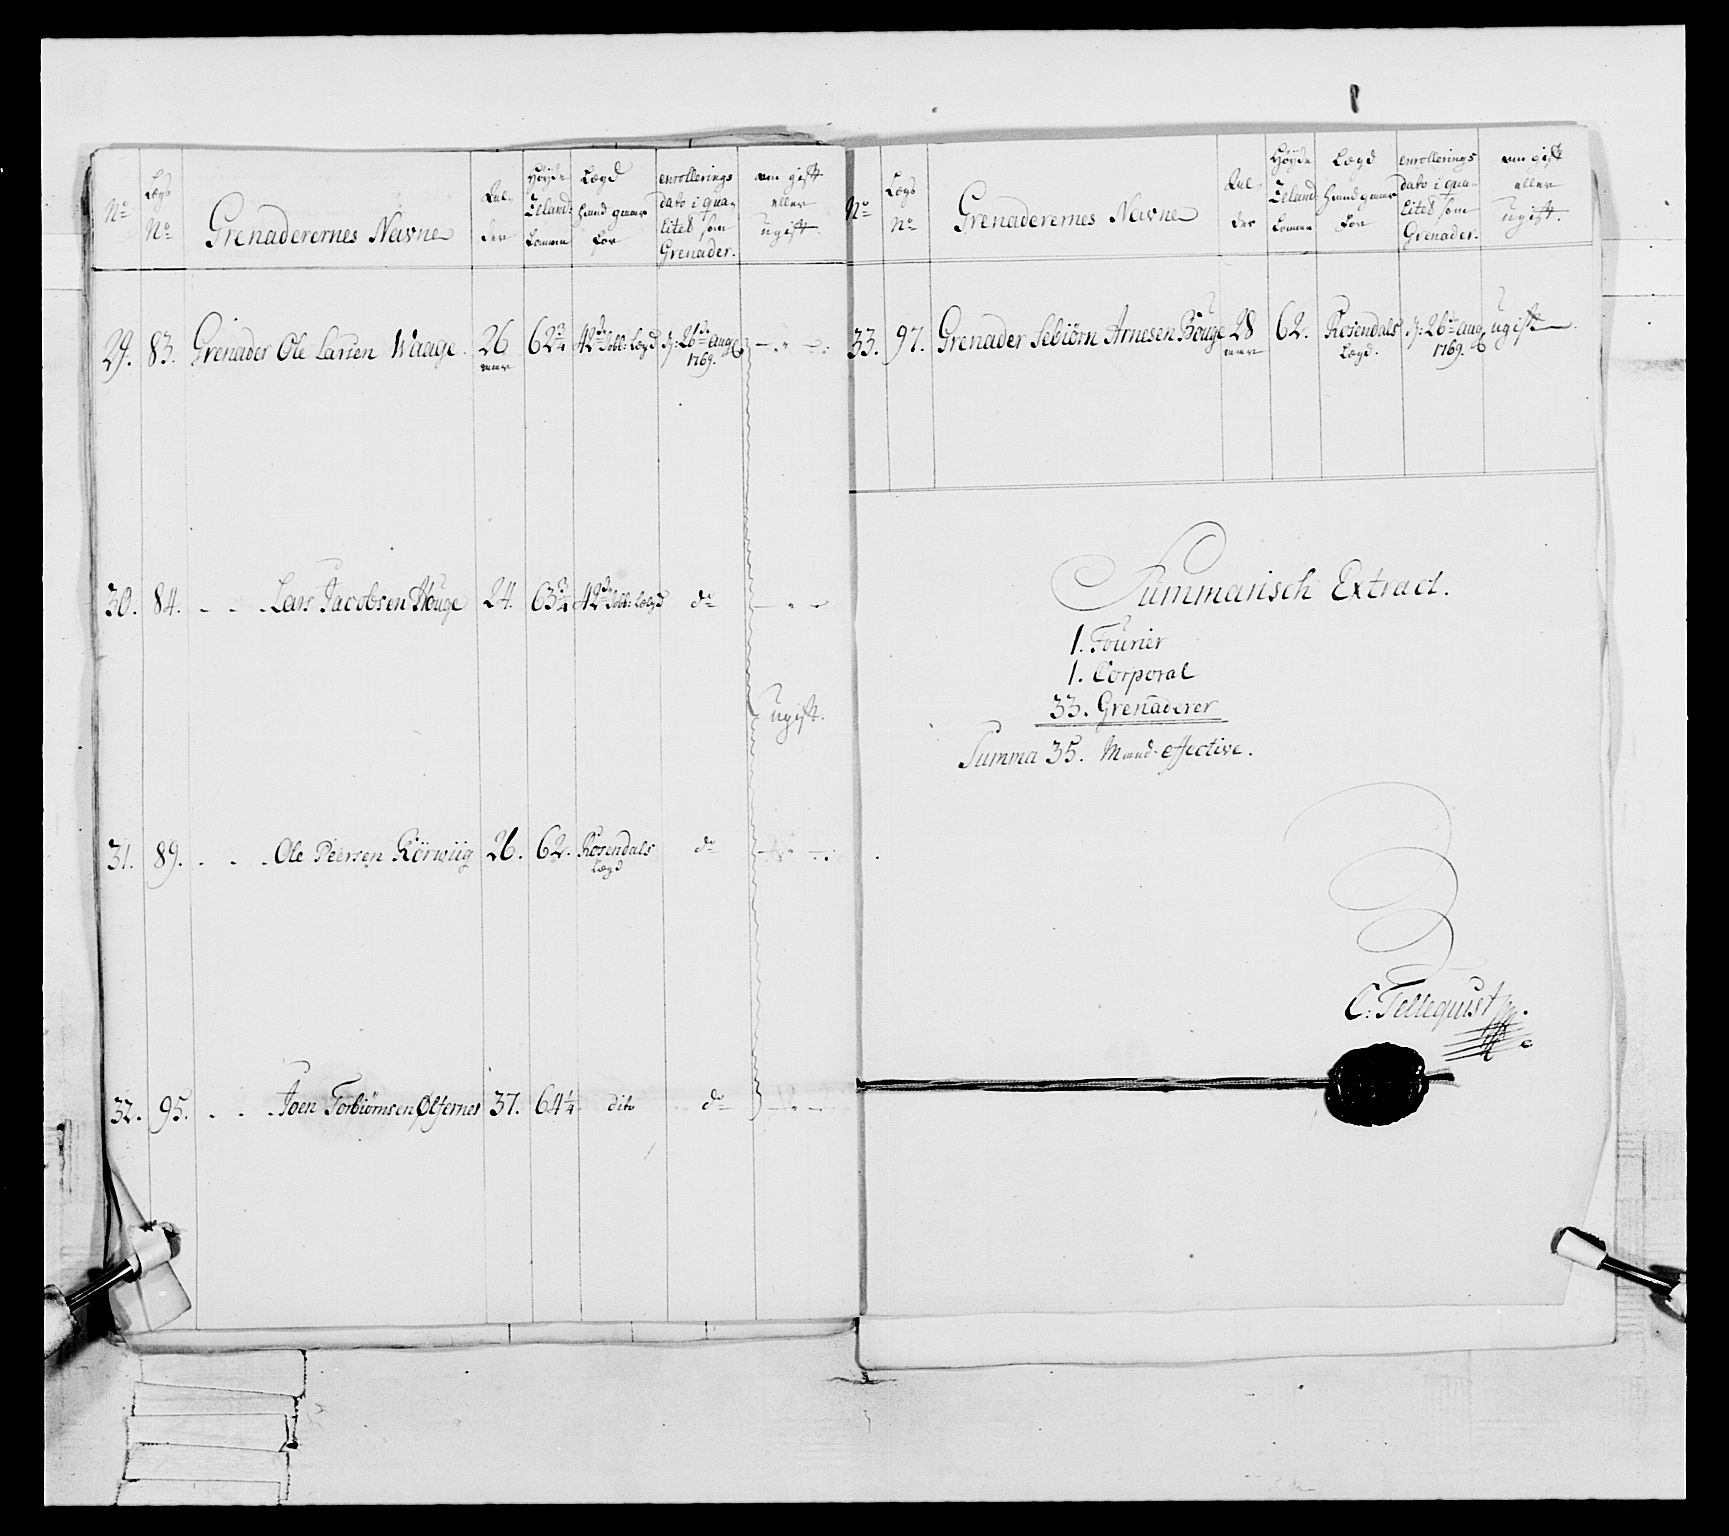 No
Lægs No
Grenaderernes Navne
Alder
Høyde Zeland: Tomme
Lægd hand giører for
enrollerings dato i qualitet som Grenader.
om gift eller ugift.
29. 83. Grenader Ole Larsen Waage. 26 62 3/4 42de Lægd d: 26de aug 1769. — " —
30. 84. - - Lars Jacobsen Houge 24. 63 3/4 42de Lægd do — " —
ugift.
31. 89. - - Ole Peersen Körwiig 26. 62. Rosendals Lægd do — " —
32. 95. - - Joen Torbiörnsen Ølfernes 37. 64 1/4 dito do — " —
No
Lægs No
Grenaderernes Navne
Alder
Høyde Zeland: Tomme
Lægd hand giører for
enrollerings dato i qualitet som Grenader.
om gift eller ugift.
33. 97. Grenader Sebiörn Arnesen Bouge 28 62. Rosendals Lægd. d: 26de aug 1769. ugift
Summarisch Extract.
1. Fourier
1. Corporal
33. Grenaderer
Summa 35. Mand effective.
C: Tellequist